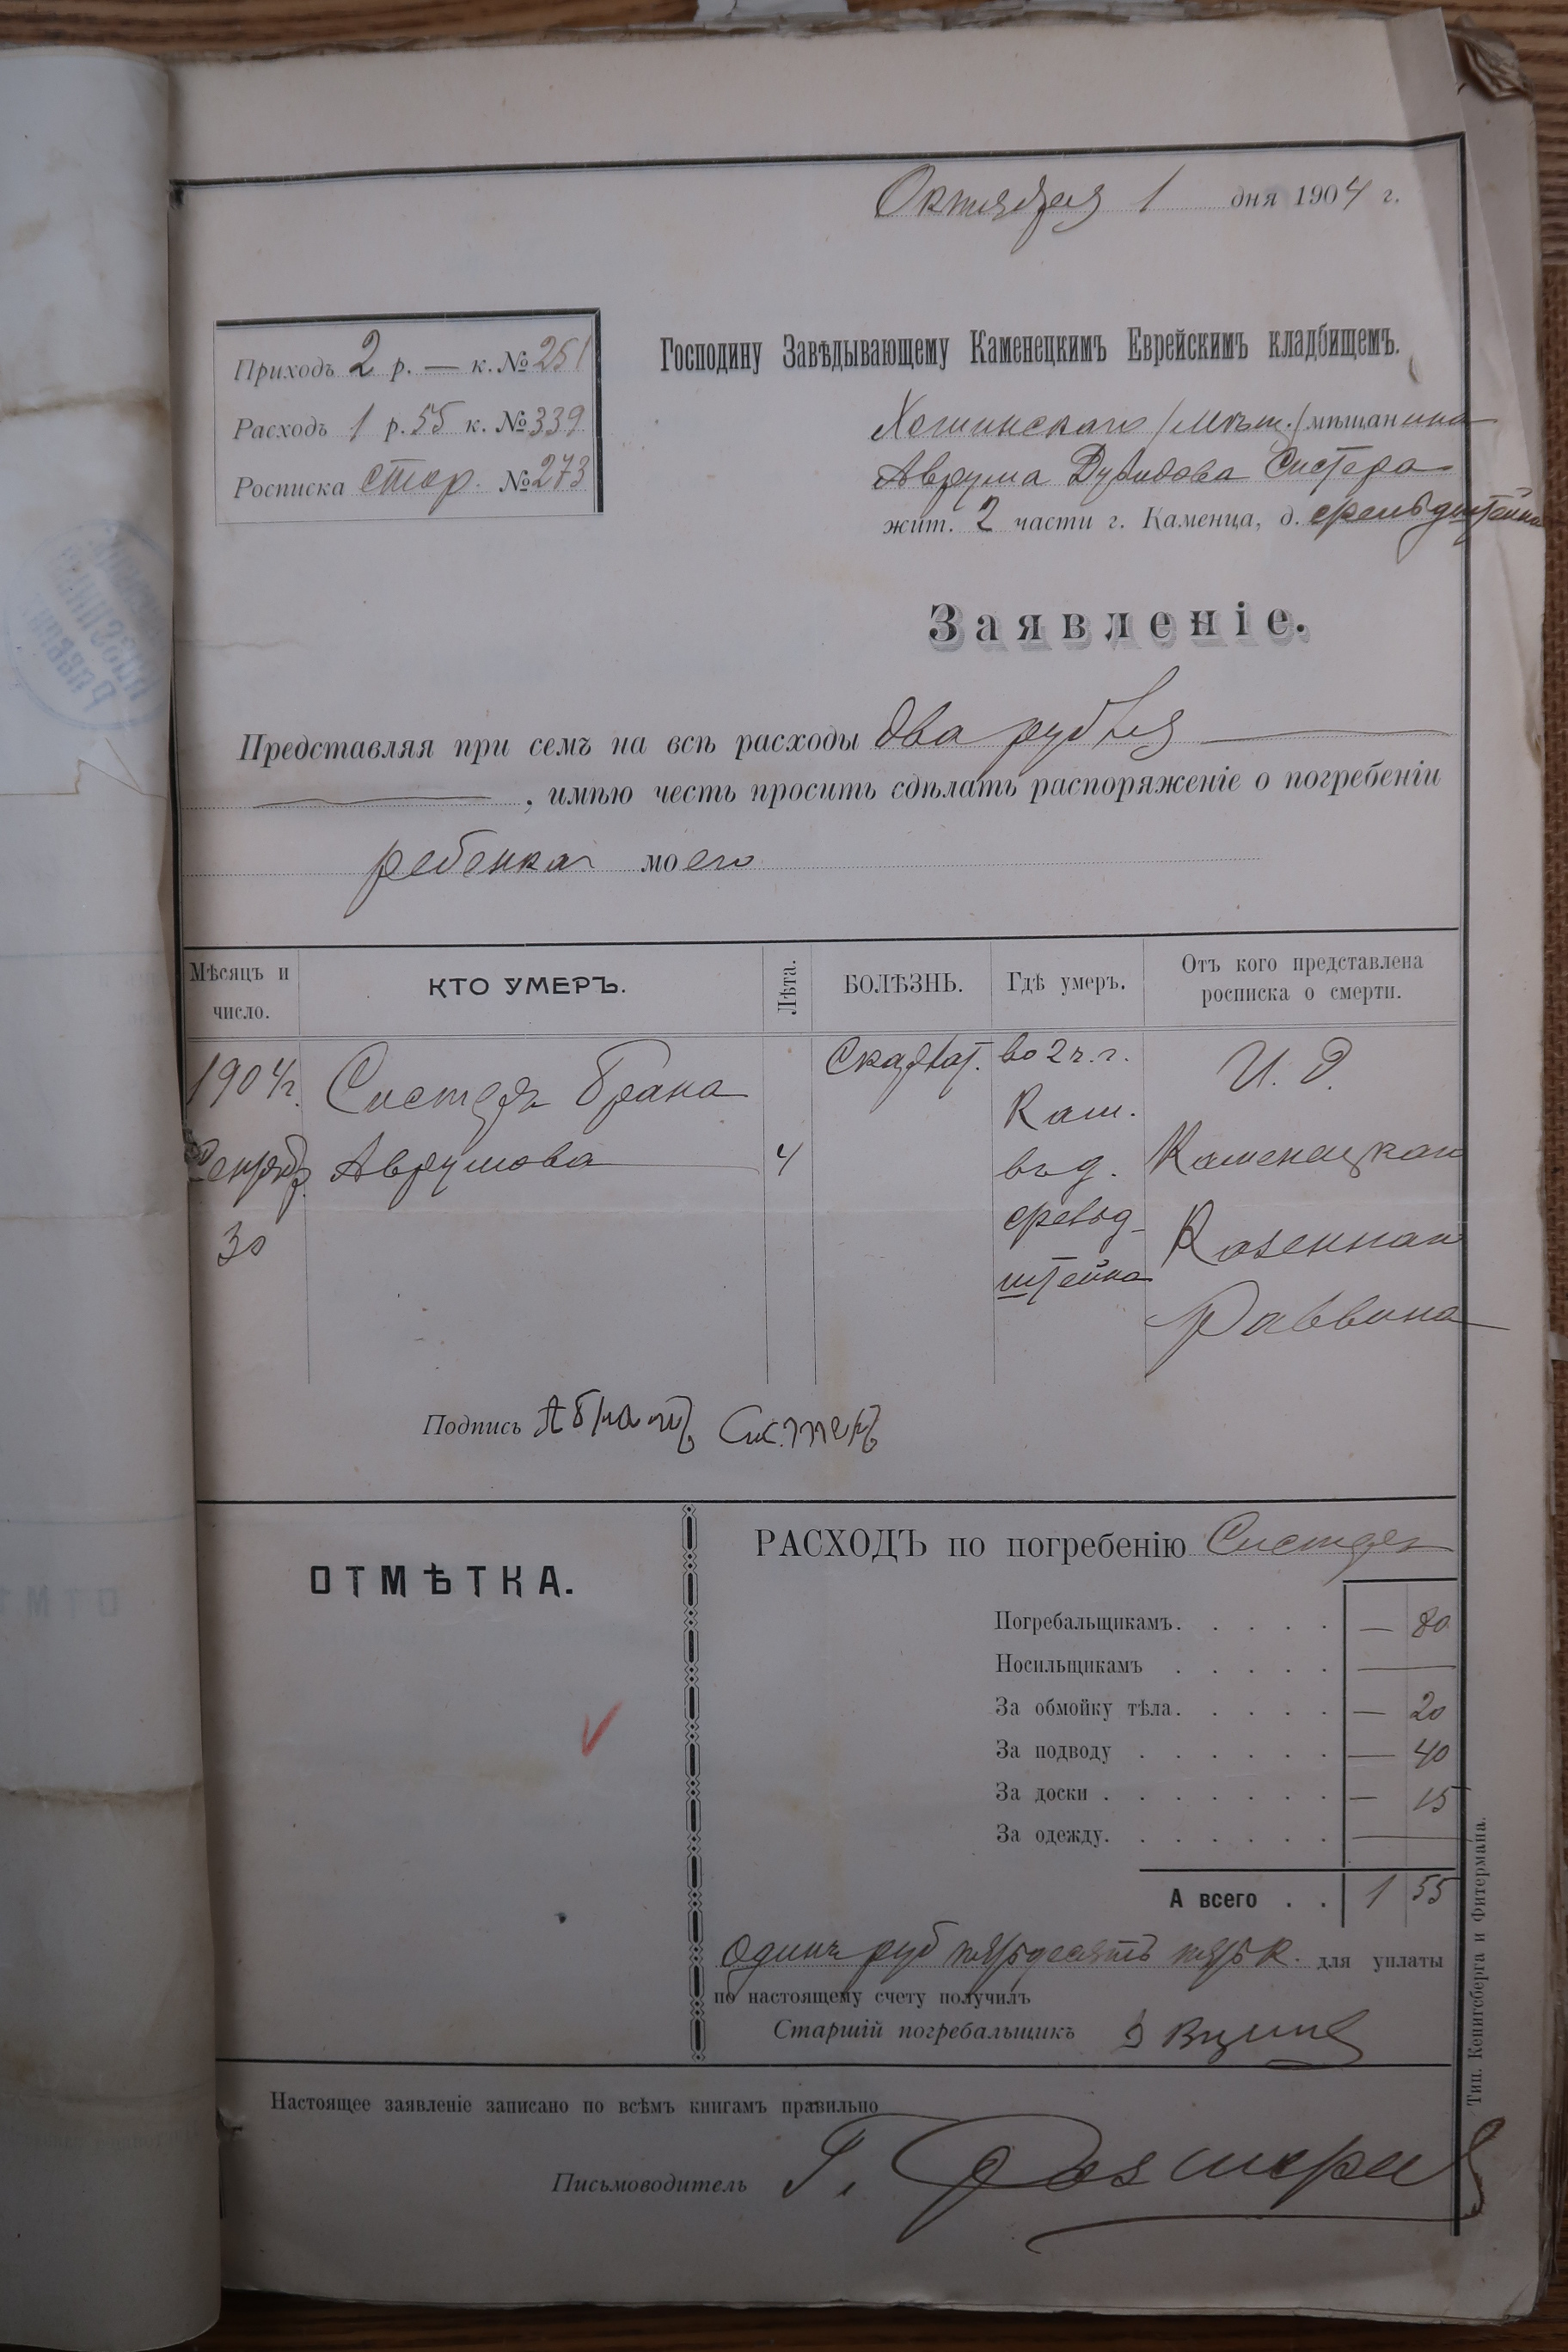 Октября 1 дня 1904 г.
Приходъ 2 р. — к. № 251
Расходъ 1 р. 55 к. № 339
Росписка стор. № 273
Господину Завѣдывающему Каменецкимъ Еврейскимъ кладбищемъ.
мѣщанина
Аврума Дувидова Систера
жит. 2 части г. Каменца, д.
Заявленіе.
Представляя при семъ на всѣ расходы два рубля
, имѣю честь просить сдѣлать распоряженіе о погребеніи
ребенка моего
Мѣсяцъ и число.
КТО УМЕРЪ.
Лѣта.
БОЛѢЗНЬ.
Гдѣ умеръ.
Отъ кого представлена росписка о смерти.
1904 г.
Сентябр.
30
Систеръ Брана
Аврумова
4
Скарлат.
во 2 ч. г.
Кам.
въ д.
штейна
И. Д.
Каменецкаго
Казеннаго
Раввина
Подпись
ОТМѢТКА.
РАСХОДЪ по погребенію Систеръ
Погребальщикамъ. . . . . — 80
Носильщикамъ . . . . . —
За обмойку тѣла. . . . . — 20
За подводу . . . . . . — 40
За доски . . . . . . . — 15
За одежду. . . . . . . —
А всего . . 1 55
Одинъ руб пятьдесятъ пять к. для уплаты
по настоящему счету получилъ
Старшій погребальщикъ
Настоящее заявленіе записано по всѣмъ книгамъ правильно
Письмоводитель Г.
Тип. Кенигсберга и Фитермана.